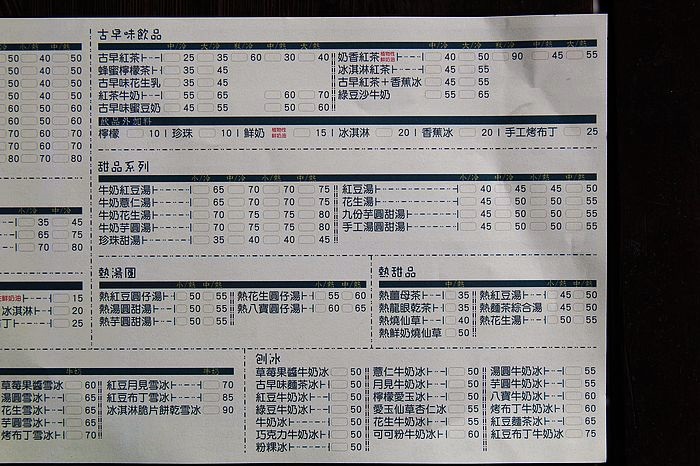 古早味飲品
中/冷 大/冷 瓶/冷 中/熱 大/熱
中/冷 大/冷 瓶/冷 中/熱 大/熱
古早紅茶 25 35 60 30 40
蜂蜜檸檬茶 35 45
古早味花生乳 35 45
紅茶牛奶 55 65 60 70
古早味蜜豆奶 45 55 50 60
奶香紅茶 植物性鮮奶油 40 50 90 45 55
冰淇淋紅茶 45 55
古早紅茶+香蕉冰 45 55
綠豆沙牛奶 55 65
飲品外加料
檸檬 10 珍珠 10 鮮奶 植物性鮮奶油 15 冰淇淋 20 香蕉冰 20 手工烤布丁 25
甜品系列
小/冷 中/冷 小/熱 中/熱
小/冷 中/冷 小/熱 中/熱
牛奶紅豆湯 65 70 70 75
牛奶薏仁湯 65 70 70 75
牛奶花生湯 70 75 75 80
牛奶芋圓湯 70 75 75 80
珍珠甜湯 35 40 40 45
紅豆湯 40 45 45 50
花生湯 45 50 50 55
九份芋圓甜湯 45 50 50 55
手工湯圓甜湯 45 50 50 55
熱湯圓
小/熱 中/熱
小/熱 中/熱
熱紅豆圓仔湯 50 55
熱湯圓甜湯 50 55
熱芋圓甜湯 50 55
熱花生圓仔湯 55 60
熱八寶圓仔湯 60 65
熱甜品
熱薑母茶 35
熱龍眼乾茶 35
熱燒仙草 40
熱鮮奶燒仙草 50
熱紅豆湯 45 50
熱麵茶綜合湯 45 50
熱花生湯 50 55
刨冰
草莓果醬牛奶冰 50
古早味麵茶冰 50
紅豆牛奶冰 50
綠豆牛奶冰 50
牛奶冰 50
巧克力牛奶冰 50
粉粿冰 50
薏仁牛奶冰 50
月見牛奶冰 50
檸檬愛玉冰 50
愛玉仙草杏仁冰 55
花生牛奶冰 55
可可粉牛奶冰 60
湯圓牛奶冰 55
芋圓牛奶冰 55
八寶牛奶冰 60
烤布丁牛奶冰 60
紅豆麵茶冰 65
紅豆布丁牛奶冰 75
牛奶
牛奶
草莓果醬雪冰 60
湯圓雪冰 65
花生雪冰 65
芋圓雪冰 65
烤布丁雪冰 70
紅豆月見雪冰 70
紅豆布丁雪冰 85
冰淇淋脆片餅乾雪冰 90
小/熱 中/熱
50 40 50
50 40 50
50 40 50
60 50 60
60 50 60
60 50 60
70 60 70
70 70 80
70 70 80
小/冷 中/冷
35 45
65 75
70 80
鮮奶油 15
冰淇淋 20
丁 25